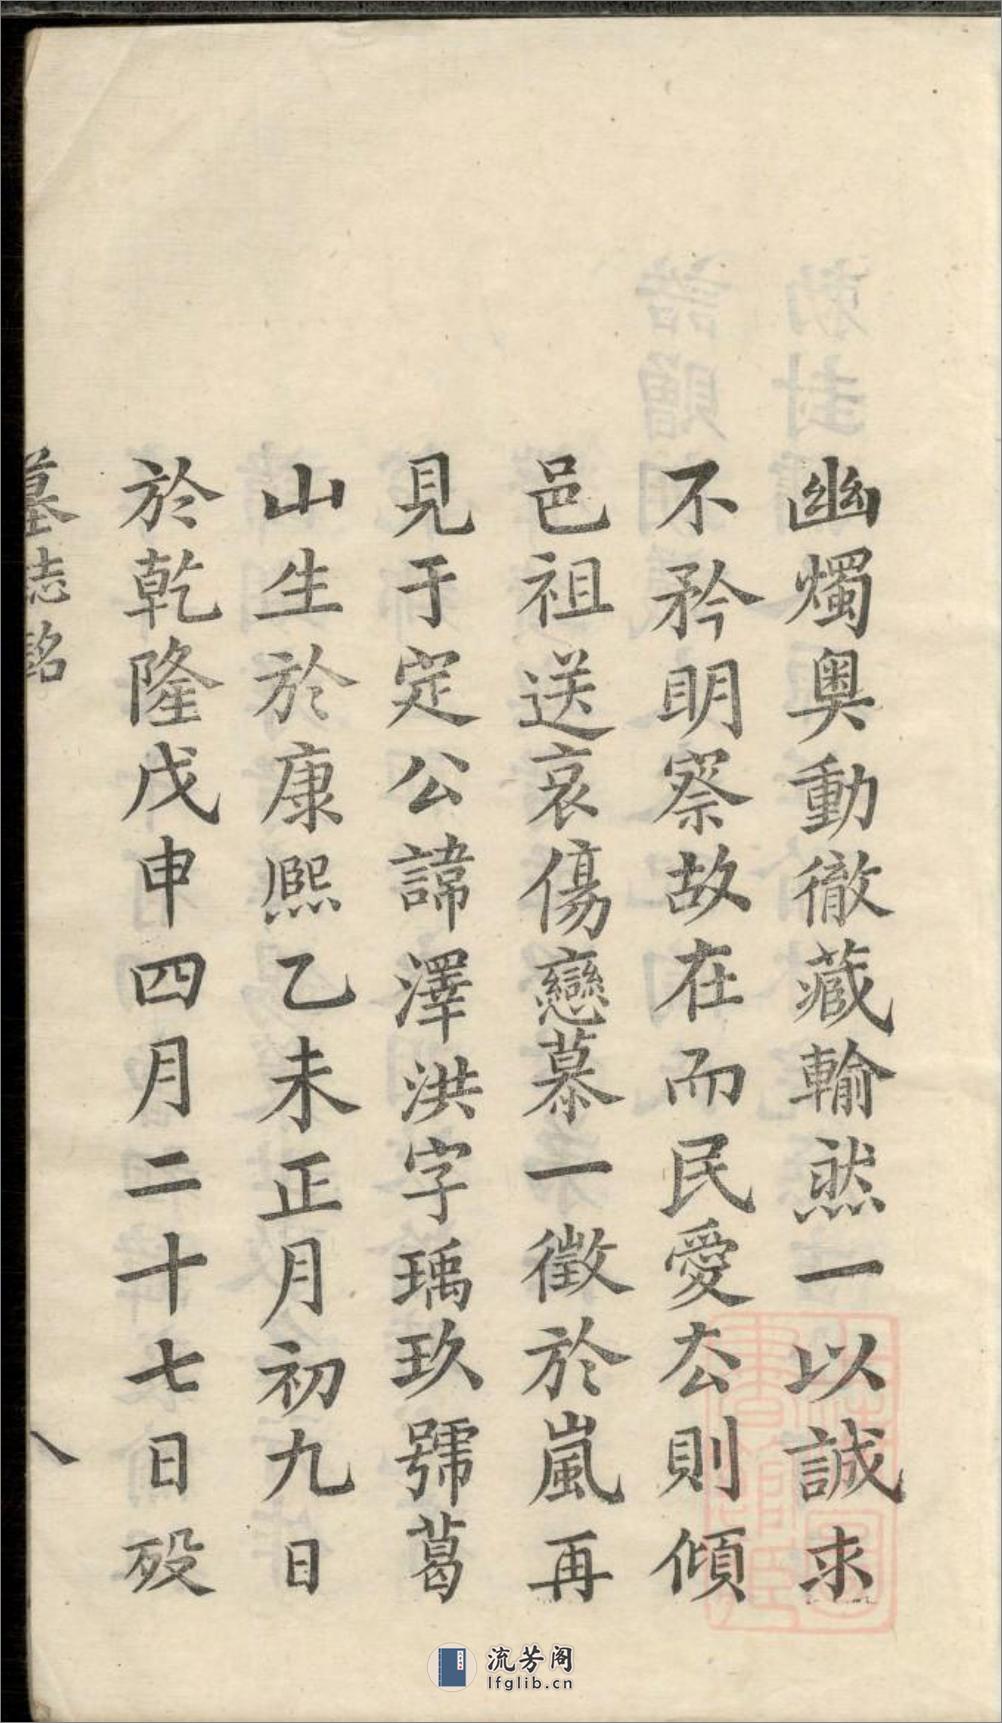 幽燭奥動徹藏輸然一以誠求
不矜明察故在而民愛去則傾
邑祖送哀傷戀慕一徵於嵐再
見于定公諱澤洪字瑀玖號葛
山生於康熙乙未正月初九日
於乾隆戊申四月二十七日歿
墓志銘
八
流芳阁
lfglib.cn